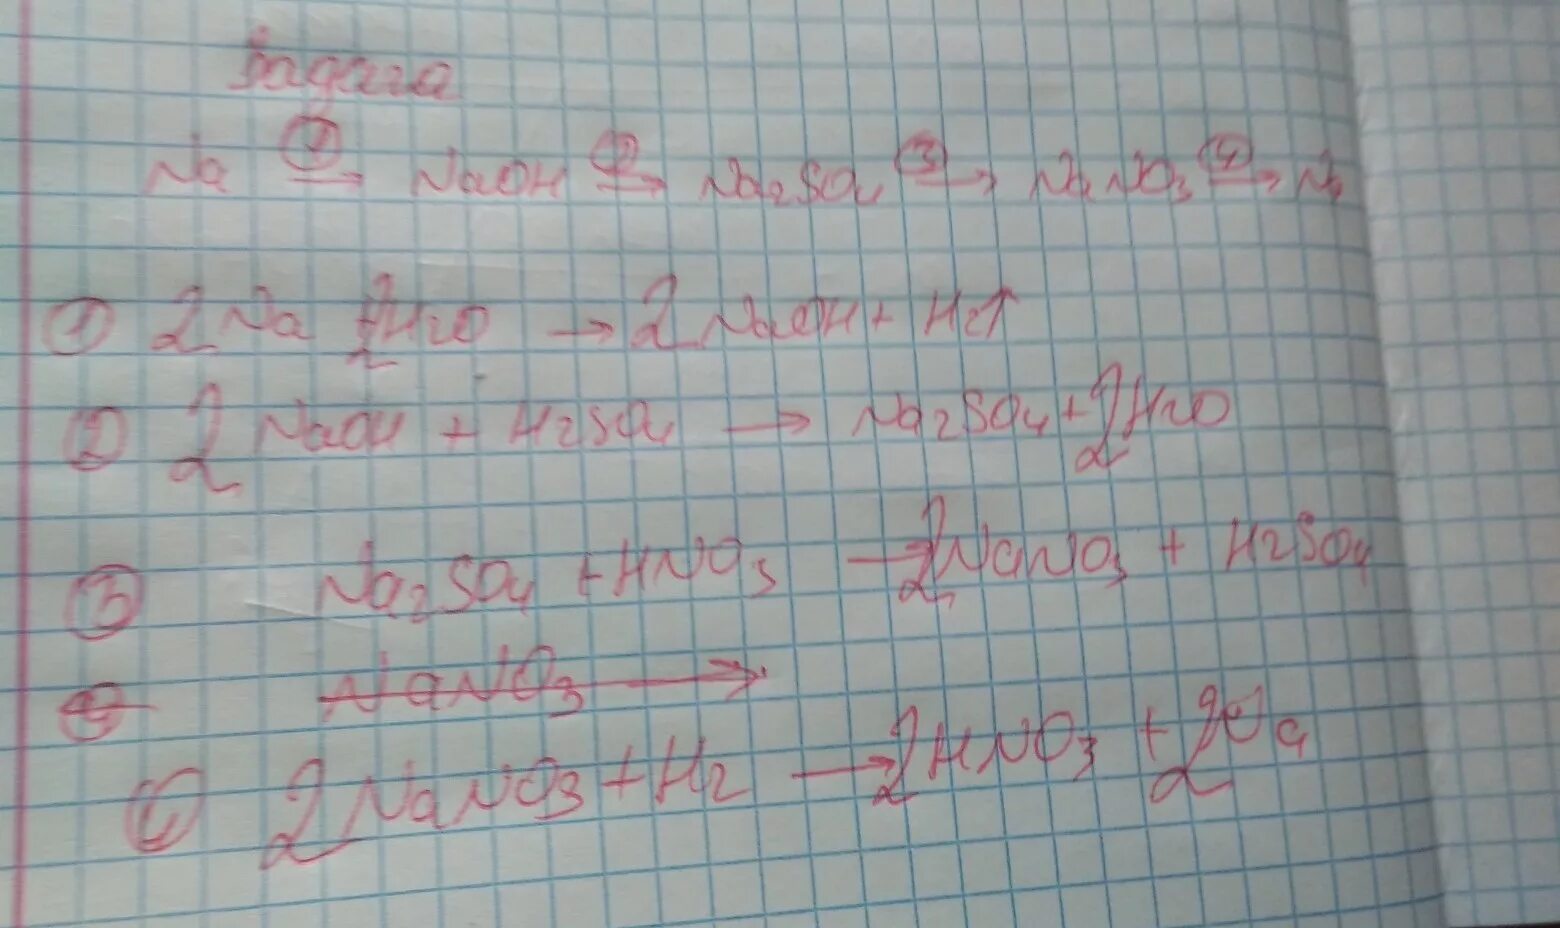 Задача
Na ①→ NaOH ②→ Na2SO4 ③→ NaNO3 ④→ Na
① 2Na + 2H2O → 2NaOH + H2↑
② 2NaOH + H2SO4 → Na2SO4 + 2H2O
③ Na2SO4 + HNO3 → 2NaNO3 + H2SO4
NaNO3 →
④ 2NaNO3 + H2 → 2HNO3 + 2Na